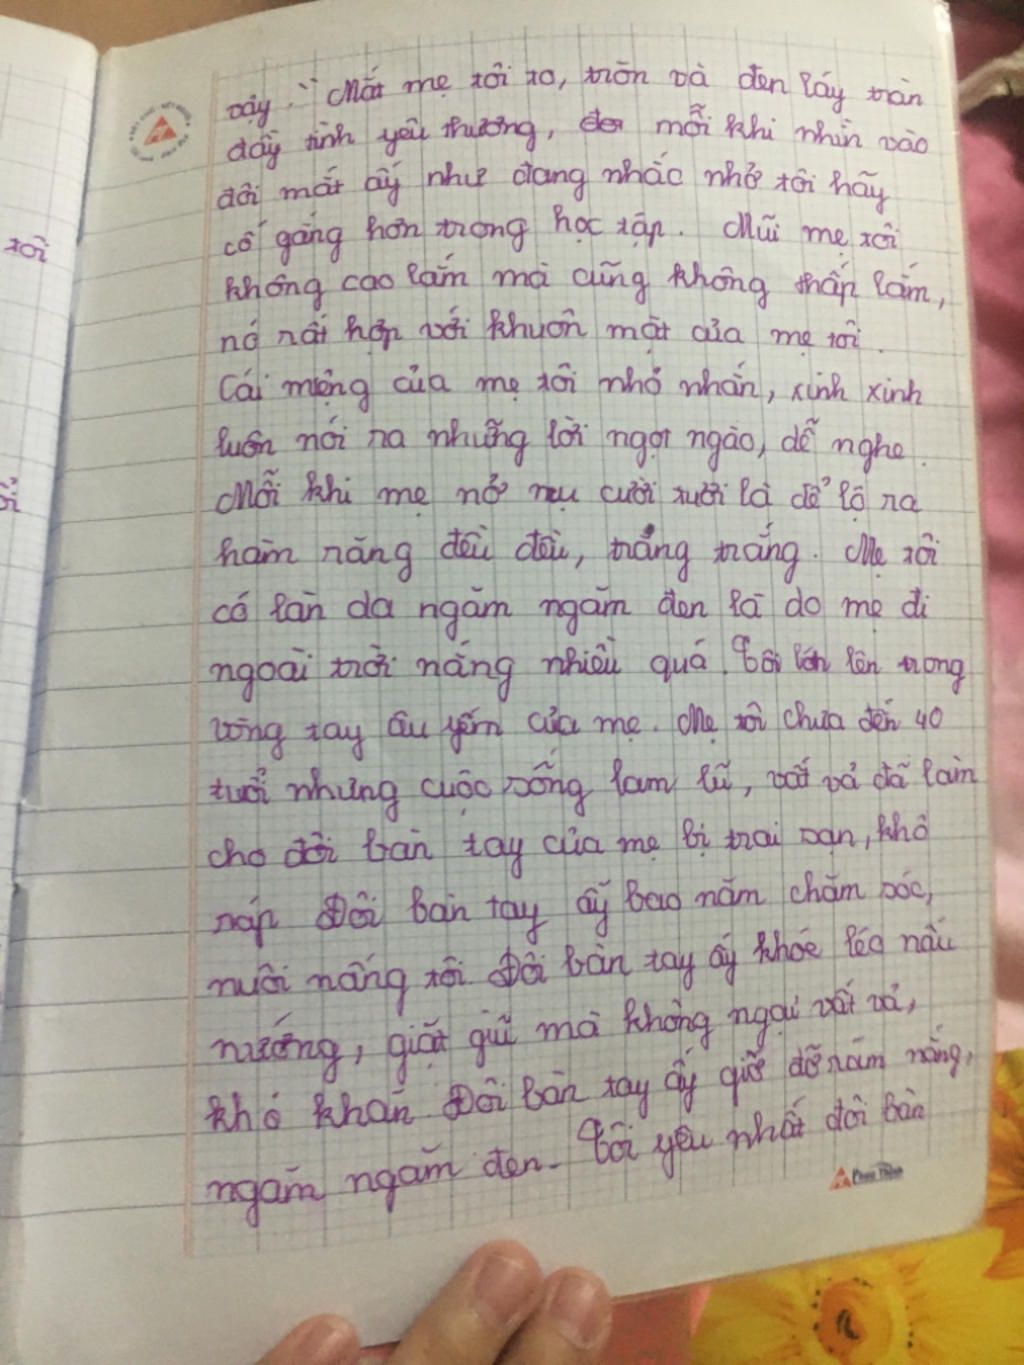 tôi
vậy." Mắt mẹ tôi to, tròn và đen láy tràn
đầy tình yêu thương, mỗi khi nhìn vào
đôi mắt ấy như đang nhắc nhở tôi hãy
cố gắng hơn trong học tập. Mũi mẹ tôi
không cao lắm mà cũng không thấp lắm,
nó rất hợp với khuôn mặt của mẹ tôi.
Cái miệng của mẹ tôi nhỏ nhắn, xinh xinh
luôn nói ra những lời ngọt ngào, dễ nghe.
Mỗi khi mẹ nở nụ cười tười là để lộ ra
hàm răng đều đều, trắng trắng. Mẹ tôi
có làn da ngăm ngăm đen là do mẹ đi
ngoài trời nắng nhiều quá. Tôi lớn lên trong
vòng tay âu yếm của mẹ. Mẹ tôi chưa đến 40
tuổi nhưng cuộc sống lam lũ, vất vả đã làm
cho đôi bàn tay của mẹ bị trai sạn, khô
ráp Đôi bàn tay ấy bao năm chăm sóc,
nuôi nấng tôi Đôi bàn tay ấy khóe léo nấu
nướng, giặt giũ mà không ngại vất vả,
khó khăn Đôi bàn tay ấy giờ đã rám nắng,
ngăm ngăm đen. Tôi yêu nhất đôi bàn